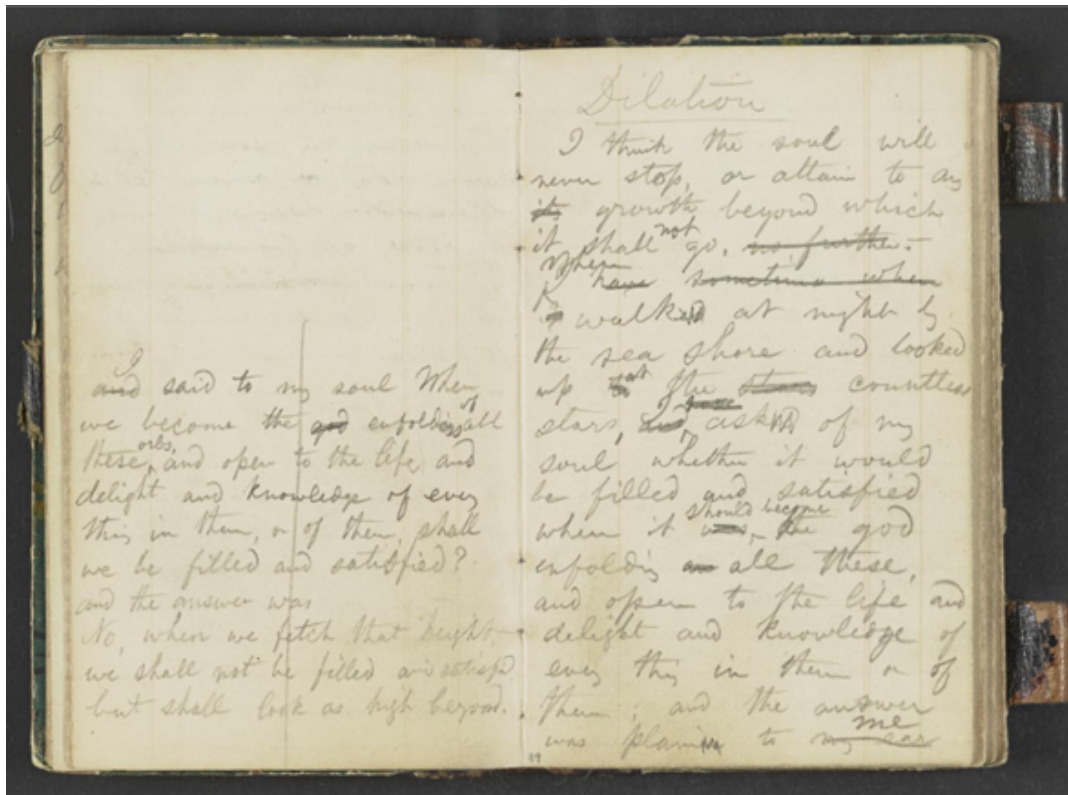 I
and said to my soul When
we become the god enfolders of all
these orbs, and open to the life and
delight and knowledge of every
thing in them, or of them, shall
we be filled and satisfied?
and the answer was
No, when we fetch that height
we shall not be filled and satisfied
but shall look as high beyond.
Dilation
I think the soul will
never stop, or attain to any
its growth beyond which
it shall not go, no further.
When
I have sometimes when
walked at night by
the sea shore and looked
up at the stars countless
stars, and have asked of my
soul whether it would
be filled and satisfied
when it was should become the god
enfolding all these,
and open to the life and
delight and knowledge of
every thing in them or of
them; and the answer
was plain to my ear me
89